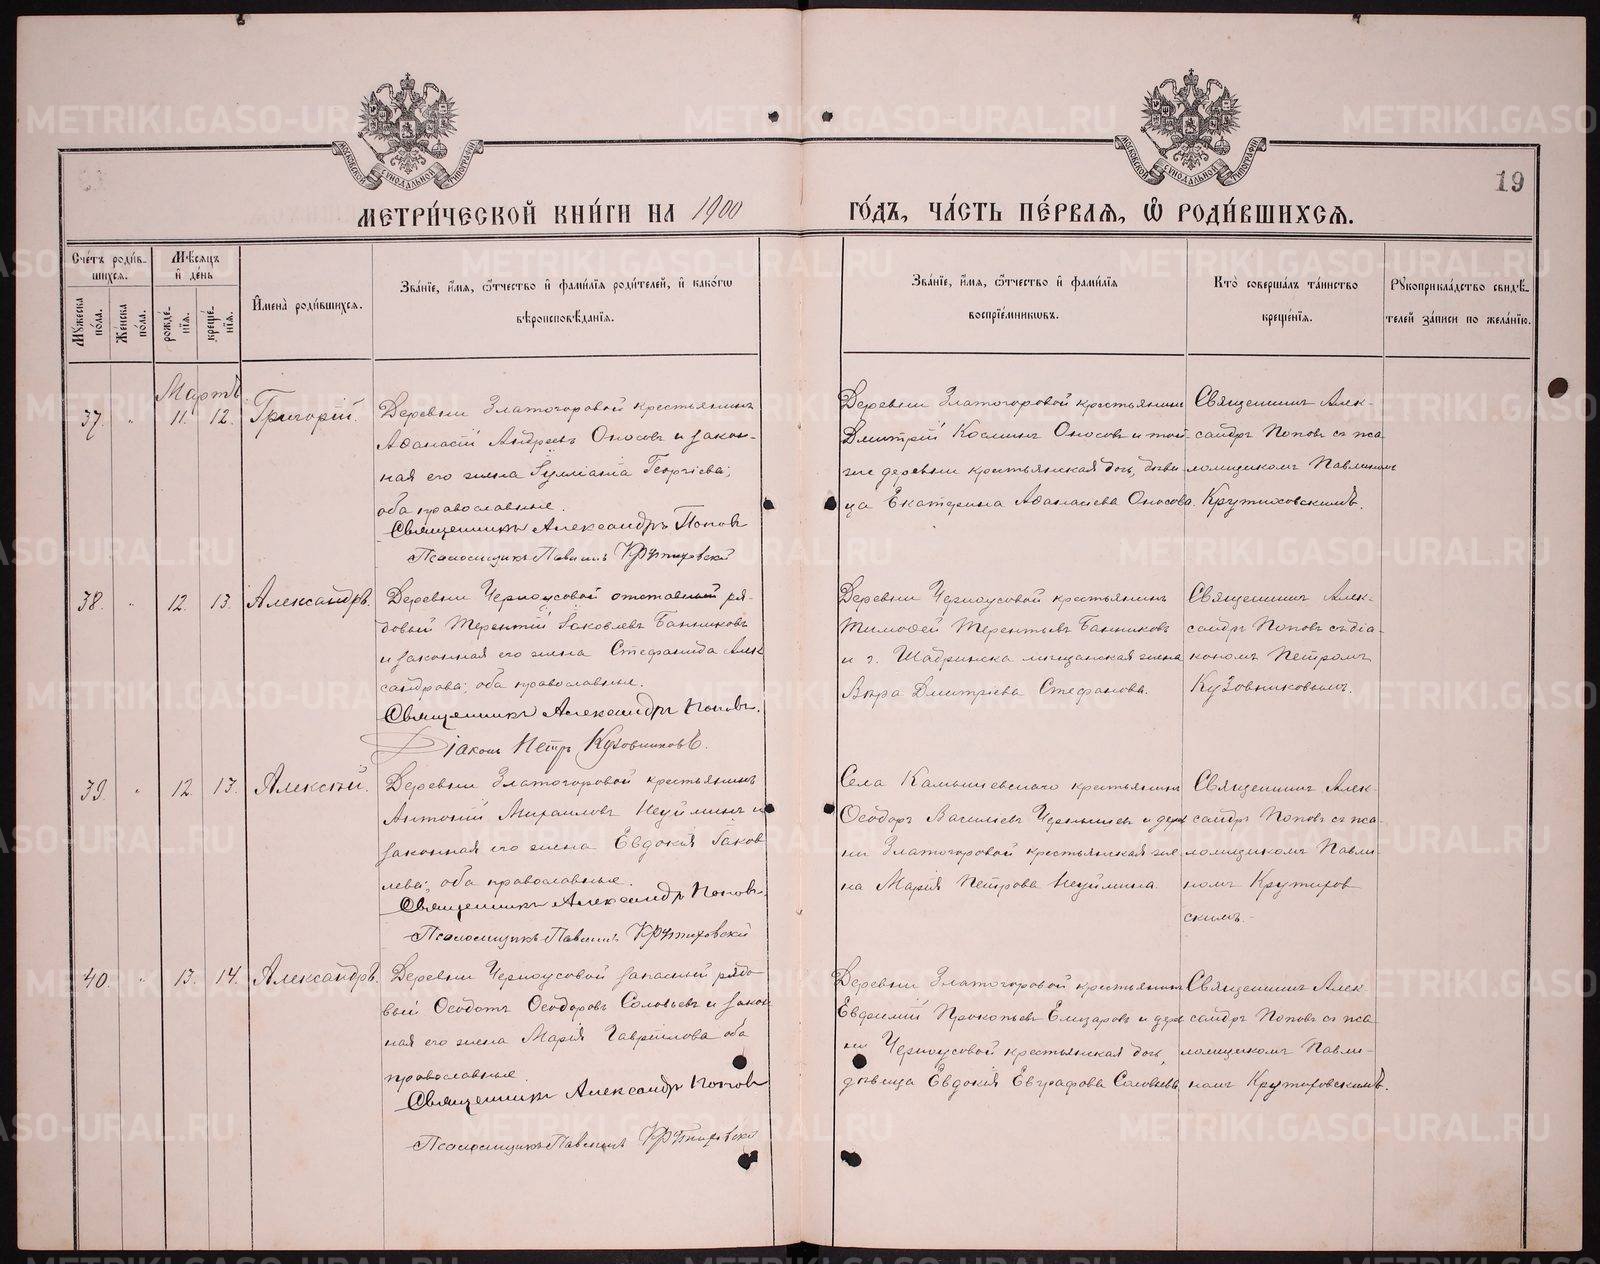 19
МЕТРИ́ЧЕСКОЙ КНИ́ГИ НА 1900 ГО́ДЪ, ЧА́СТЬ ПЕ́РВАѦ, Ѡ҆ РОДИ́ВШИХСѦ.
Сче́тъ роди́в-
шихсѧ.
Мꙋ́жеска по́ла.
Же́нска по́ла.
Мѣ́сѧцъ
и҆ де́нь
рожде́-
нїѧ.
креще́-
нїѧ.
И҆мена̀ роди́вшихсѧ.
Зва́нїе, и҆́мѧ, ѻ҆́тчество и҆ фами́лїѧ роди́телей, и҆ како́гѡ
вѣроисповѣ́данїѧ.
Зва́нїе, и҆́мѧ, ѻ҆́тчество и҆ фами́лїѧ
воспрїе́мниковъ.
Кто̀ соверша́лъ та́инство
креще́нїѧ.
Рꙋкоприкла́дство свидѣ́-
телей за́писи по жела́нїю.
Мартъ
37. " 11. 12. Григорій.
Деревни Златогоровой крестьянинъ
Аѳанасій Андреевъ Оносовъ и закон-
ная его жена Іулліанія Георгіева;
оба православные.
Священникъ Александръ Поповъ
Псаломщикъ Павлинъ Крутиховскій
Деревни Златогоровой крестьянинъ
Дмитрій Косминъ Оносовъ и той-
же деревни крестьянская дочь, дѣви-
ца Екатерина Аѳанасіева Оносова.
Священникъ Алек-
сандръ Поповъ съ пса-
ломщикомъ Павлиномъ
Крутиховскимъ.
38. " 12. 13. Александръ.
Деревни Черноусовой отставный ря-
довый Терентій Іаковлевъ Банниковъ
и законная его жена Стефанида Алек
сандрова; оба православные.
Священникъ Александръ Поповъ.
Діаконъ Петръ Кузовниковъ.
Деревни Черноусовой крестьянинъ
Тимоѳей Терентьевъ Банниковъ
и г. Шадринска мѣщанская жена
Вѣра Дмитріева Стефанова.
Священникъ Алек-
сандръ Поповъ съ діа-
кономъ Петромъ
Кузовниковымъ.
39. " 12. 13. Алексѣй.
Деревни Златогоровой крестьянинъ
Антоній Михаиловъ Неуйминъ и
законная его жена Евдокія Іаков
лева; оба православные.
Священникъ Александръ Поповъ.
Псаломщикъ Павлинъ Крутиховскій
Села Камышевскаго крестьянинъ
Ѳеодоръ Васильевъ Чернышевъ и дерев
ни Златогоровой крестьянская же-
на Марія Петрова Неуймина.
Священникъ Алек-
сандръ Поповъ съ пса-
ломщикомъ Павли
номъ Крутихов
скимъ.
40. " 13. 14. Александръ.
Деревни Черноусовой запасный рядо
вый Ѳеодотъ Ѳеодоровъ Соловьевъ и закон
ная его жена Марія Гавріилова оба
православные.
Священникъ Александръ Поповъ
Псаломщикъ Павлинъ Крутиховскій
Деревни Златогоровой крестьянинъ
Евфимій Прокопьевъ Елизаровъ и дерев
ни Черноусовой крестьянская дочь,
дѣвица Евдокія Евграфова Соловьева.
Священникъ Алек-
сандръ Поповъ съ пса
ломщикомъ Павли-
номъ Крутиховскимъ.